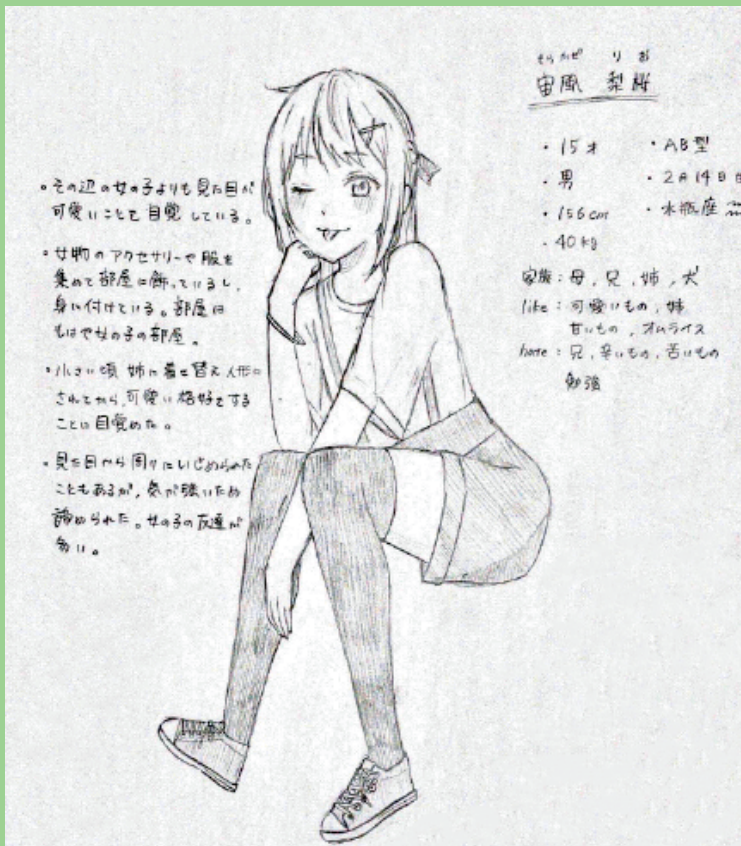 そらかぜ りお
宙風 梨桜
・15才 ・AB型
・男 ・2月14日
・156cm ・水瓶座
・40kg
家族：母，兄，姉，犬
like：可愛いもの，姉
甘いもの，オムライス
hate：兄，辛いもの，苦いもの
勉強
・その辺の女の子よりも見た目が
可愛いことを自覚している。
・女物のアクセサリーや服を
集めて部屋に飾っているし，
身に付けている。部屋は
もはや女の子の部屋。
・小さい頃 姉に着せ替え人形に
されてから，可愛い格好をする
ことに目覚めた。
・見た目から周りにいじめられた
こともあるが，気が強いため
諦められた。女の子の友達が
多い。